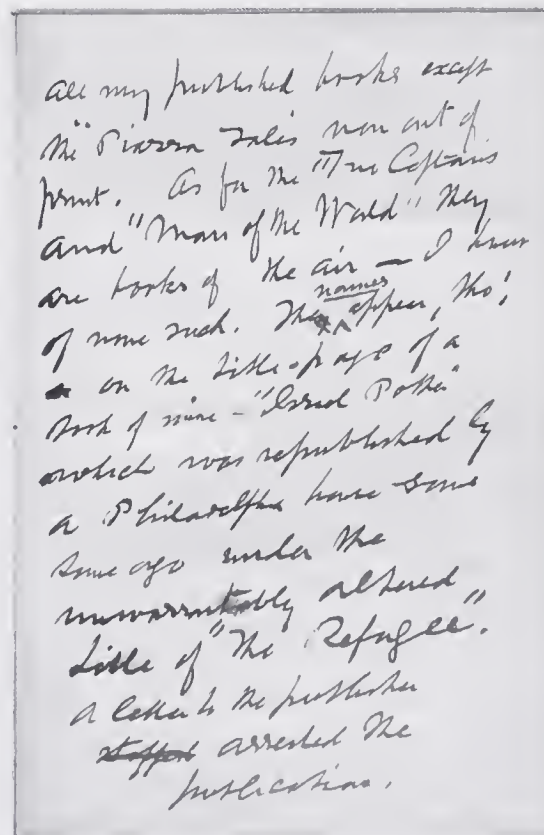 all my published books except
the "Piazza Tales" now out of
print. As for the "Two Captains"
and "Man of the World" they
are books of the air — I know
of none such. The names appear, tho',
on the title-page of a
book of mine — "Israel Potter"
which was republished by
a Philadelphia house some
time ago under the
unwarrantably altered
title of "The Refugee".
A letter to the publisher
stopped arrested the
publication.